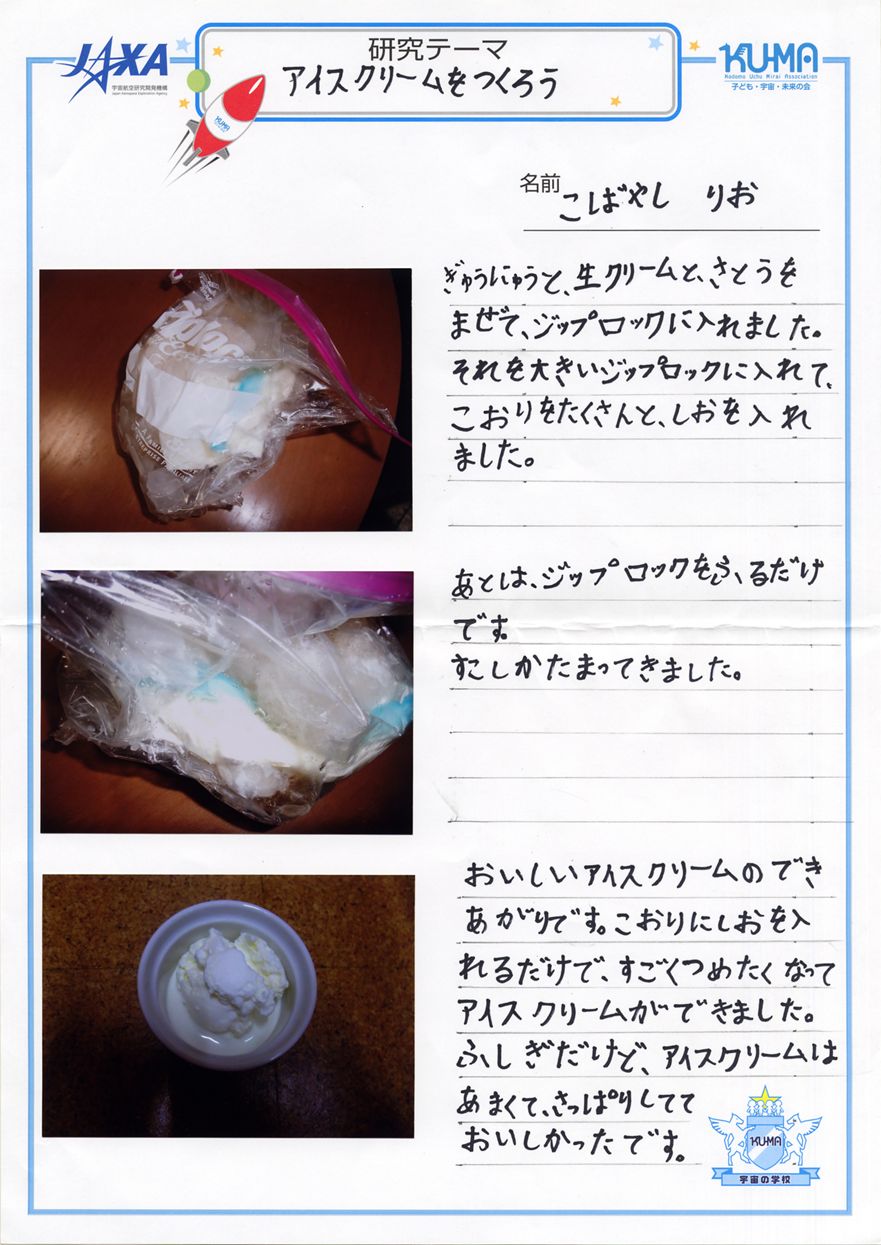 JAXA
宇宙航空研究開発機構
Japan Aerospace Exploration Agency
研究テーマ
アイスクリームをつくろう
KU-MA
Kodomo Uchu Mirai Association
子ども・宇宙・未来の会
KU-MA
名前 こばやし りお
ぎゅうにゅうと、生クリームと、さとうを
まぜて、ジップロックに入れました。
それを大きいジップロックに入れて、
こおりをたくさんと、しおを入れ
ました。
あとは、ジップロックをふるだけ
です。
すこしかたまってきました。
おいしいアイスクリームのでき
あがりです。こおりにしおを入
れるだけで、すごくつめたくなって
アイスクリームができました。
ふしぎだけど、アイスクリームは
あまくて、さっぱりしてて
おいしかったです。
KU-MA
宇宙の学校